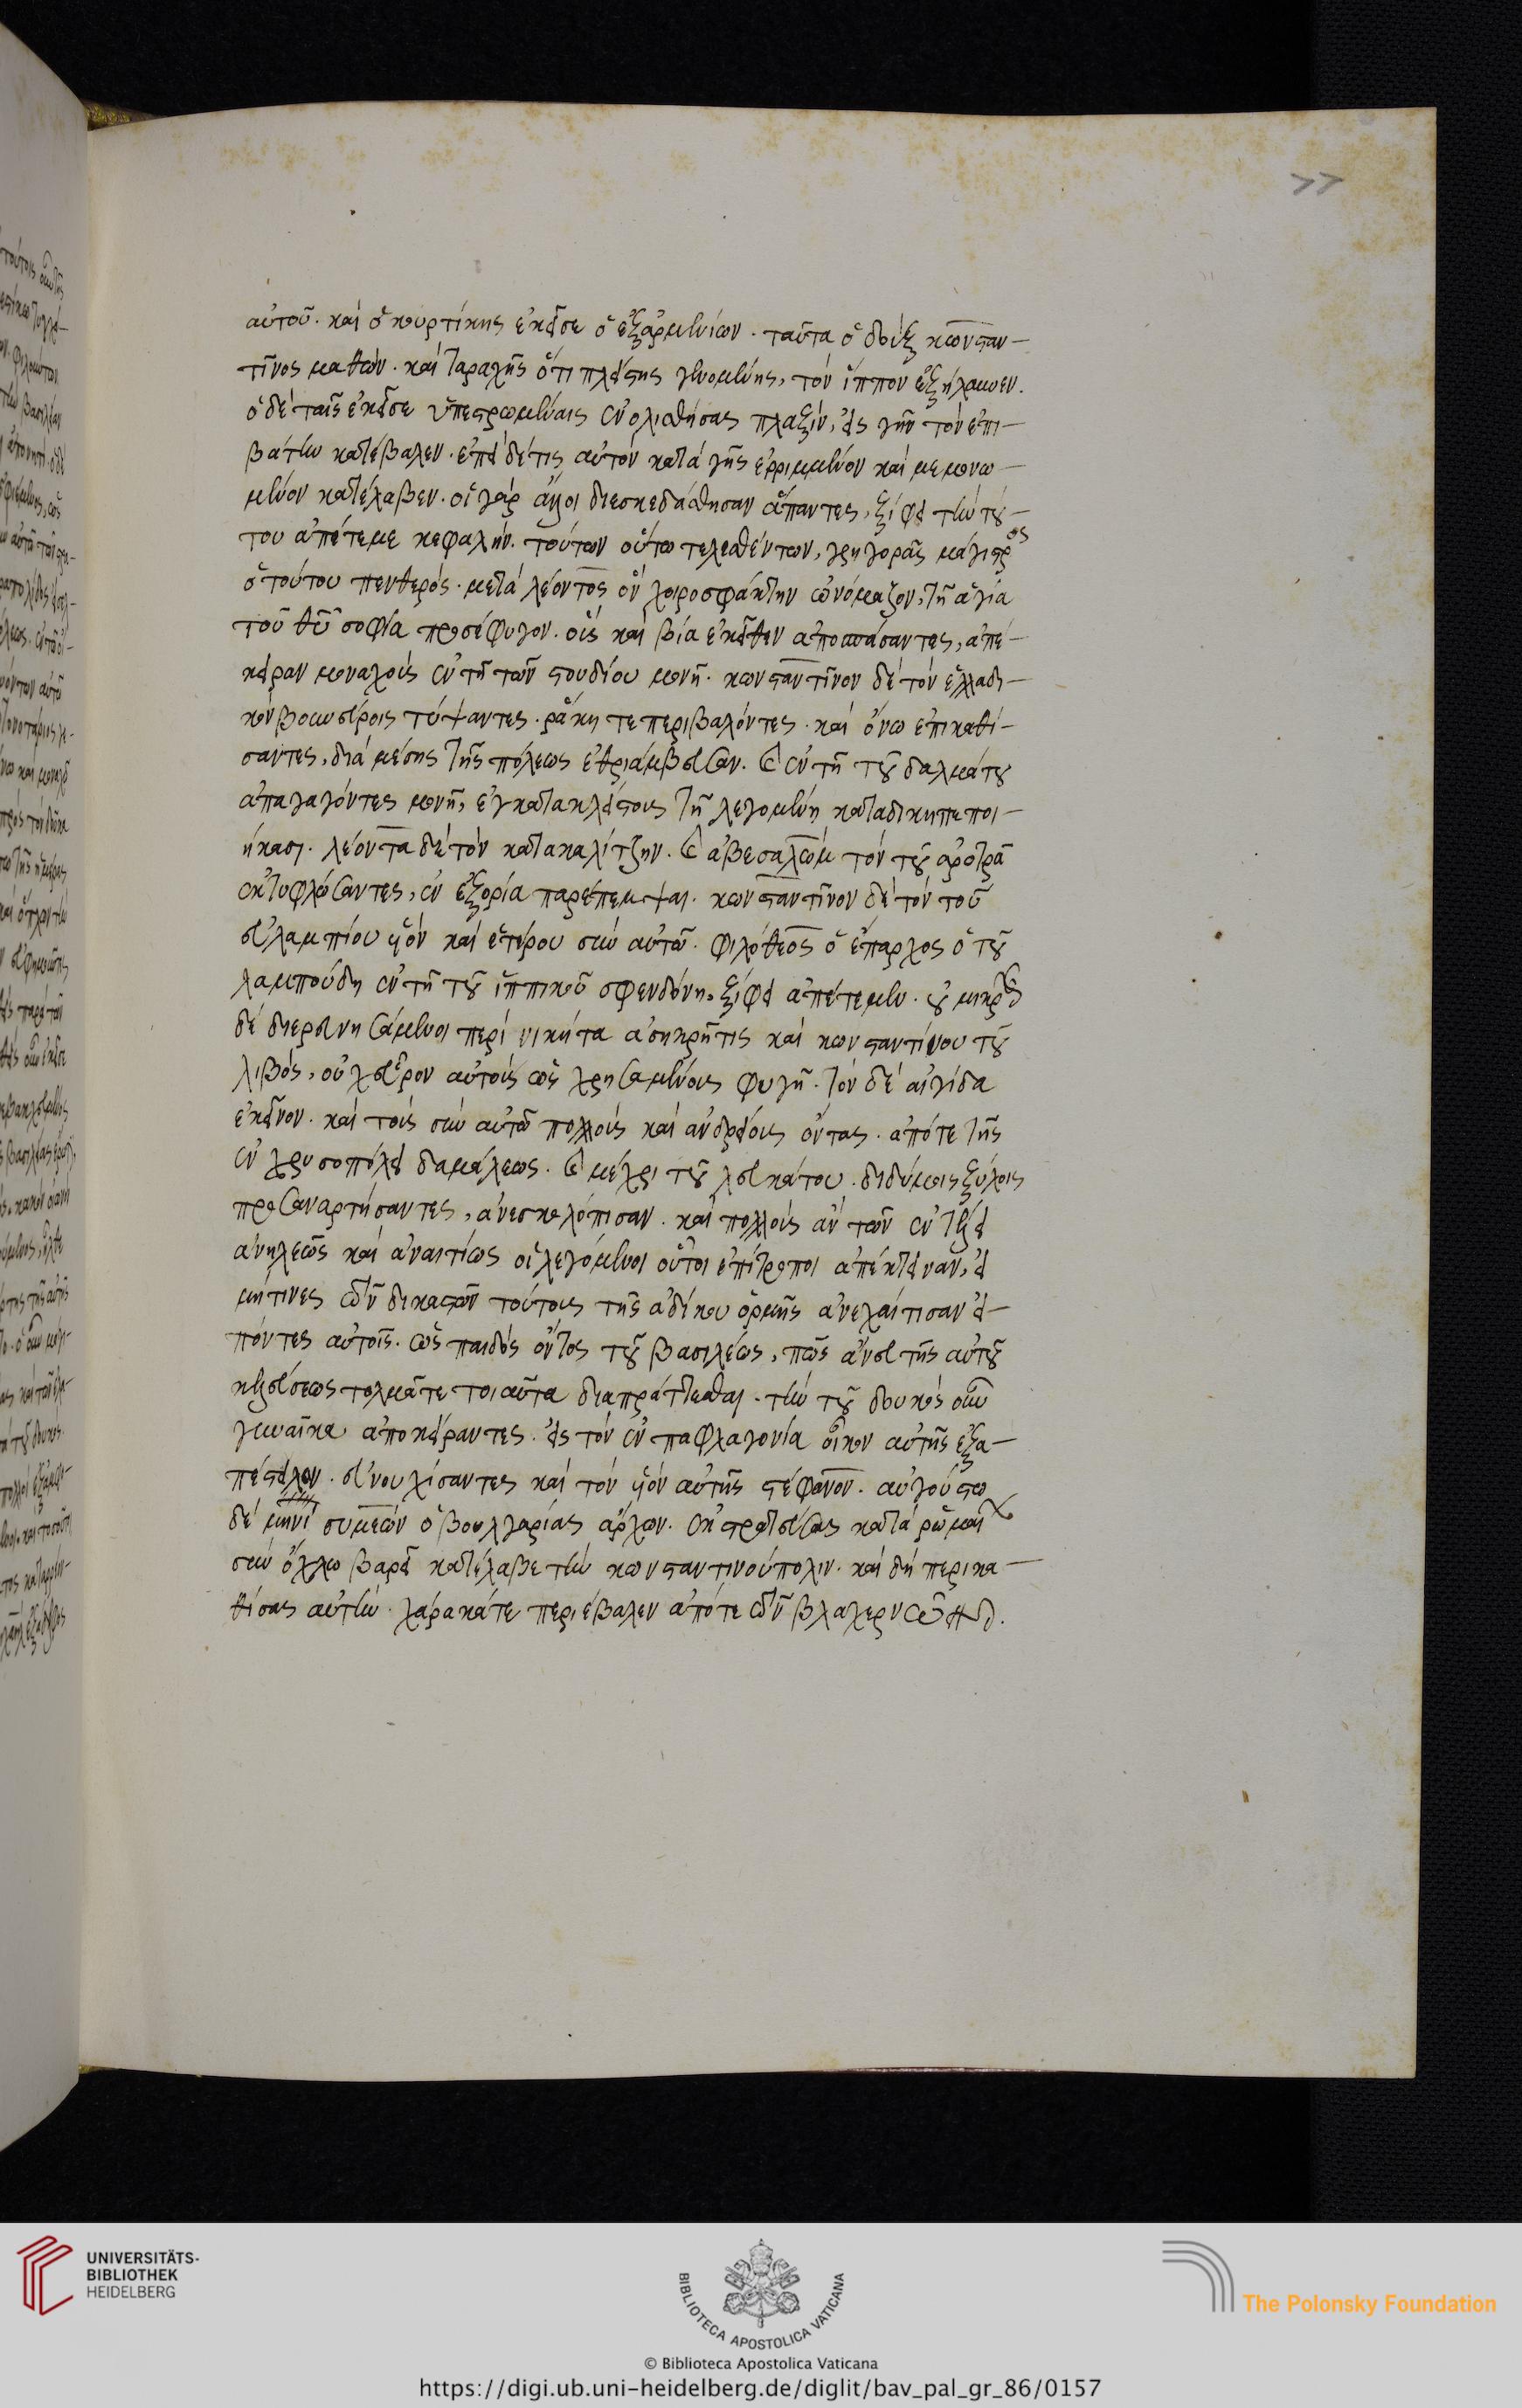 77
αὐτοῦ. καὶ ὁ κουρτίκης ἐκεῖσε ὁ ἐξ ἀρμενίων. ταῦτα ὁ δοὺξ κωνσταν-
τῖνος μαθὼν. καὶ ταραχῆς ὅτι πλείστης γενομένης, τὸν ἵππον ἐξήλαυνεν.
ὁ δὲ ταῖς ἐκεῖσε ὑπεστρωμέναις ἐνολισθήσας πλαξὶν, εἰς γῆν τὸν ἐπι-
βάτην κατέβαλεν. ἐπεὶ δέ τις αὐτὸν κατὰ γῆς ἐρριμμένον καὶ μεμονω-
μένον κατέλαβεν. οἱ γὰρ ἄλλοι διεσκεδάσθησαν ἅπαντες, ξίφει τὴν τού-
του ἀπέτεμε κεφαλήν. τούτων οὕτω τελεσθέντων, γρηγορᾶς μάγιστρος
ὁ τούτου πενθερὸς. μετὰ λέοντος ὃν χοιροσφάκτην ὠνόμαζον, τῇ ἁγία
τοῦ θῦ σοφία προσέφυγον. οὓς καὶ βία ἐκεῖθεν ἀποσπάσαντες, ἀπέ-
κειραν μοναχοὺς ἐν τῇ τῶν στουδίου μονῇ. κωνσταντῖνον δὲ τὸν ἑλλαδι-
κὸν βουνεύροις τύψαντες. ῥάκη τε περιβαλόντες. καὶ ὄνω ἐπικαθί-
σαντες, διὰ μέσης τῆς πόλεως ἐθριάμβευσαν. καὶ ἐν τῇ τοῦ δαλμάτου
ἀπαγαγόντες μονῇ, ἐγκατακλείστους τῇ λεγομένη καταδίκη πεποι-
ήκασι. λέοντα δὲ τὸν κατακαλίτζην. καὶ ἀβεσαλὼμ τὸν τοῦ ἀροτρᾶ
ἐκτυφλώσαντες, ἐν ἐξορία παρέπεμψαν. κωνσταντῖνον δὲ τὸν τοῦ
εὐλαμπίου υἱὸν καὶ ἑτέρου σὺν αὐτῶ. φιλόθεος ὁ ἔπαρχος ὁ τοῦ
λαμπούδη ἐν τῇ τοῦ ἱππικοῦ σφενδόνη, ξίφει ἀπέτεμεν. οὐ μικρὸν
δὲ διερευνησάμενοι περὶ νικήτα ἀσηκρῆτις καὶ κωνσταντίνου τοῦ
λιβὸς, οὐχ εὗρον αὐτοὺς ὡς χρησαμένους φυγῇ. τὸν δὲ αἰγίδα
ἐκεῖνον. καὶ τοὺς σὺν αὐτῶ πολλοὺς καὶ ἀνδρείους ὄντας. ἀπό τε τῆς
ἐν χρυσοπόλει δαμάλεως. καὶ μέχρι τοῦ λευκάτου. διδύμοις ξύλοις
προσαναρτήσαντες, ἀνεσκολόπισαν. καὶ πολλοὺς ἂν τῶν ἐν τέλει
ἀνηλεῶς καὶ ἀναιτίως οἱ λεγόμενοι οὗτοι ἐπίτροποι ἀπέκτειναν, εἰ
μή τινες τῶν δικαστῶν τούτους τῆς ἀδίκου ὁρμῆς ἀνεχαίτισαν εἰ-
πόντες αὐτοῖς. ὡς παιδὸς ὄντος τοῦ βασιλέως, πῶς ἄνευ τῆς αὐτοῦ
κελεύσεως τολμᾶτε τοιαῦτα διαπράττεσθαι. τὴν τοῦ δουκὸς οὖν
γυναῖκα ἀποκείραντες. εἰς τὸν ἐν παφλαγονία οἶκον αὐτῆς ἐξα-
πέστειλον. εὐνουχίσαντες καὶ τὸν υἱὸν αὐτῆς στέφανον. αὐγούστω
δὲ μηνὶ συμεὼν ὁ βουλγαρίας ἄρχων. ἐκστρατεύσας κατὰ ῥωμαίων
σὺν ὄχλω βαρεῖ κατέλαβε τὴν κωνσταντινούπολιν. καὶ δὴ περικα-
θίσας αὐτὴν. χάρακά τε περιέβαλεν ἀπό τε τῶν βλαχερνῶν
UNIVERSITÄTS-
BIBLIOTHEK
HEIDELBERG
BIBLIOTECA APOSTOLICA VATICANA
The Polonsky Foundation
© Biblioteca Apostolica Vaticana
https://digi.ub.uni-heidelberg.de/diglit/bav_pal_gr_86/0157